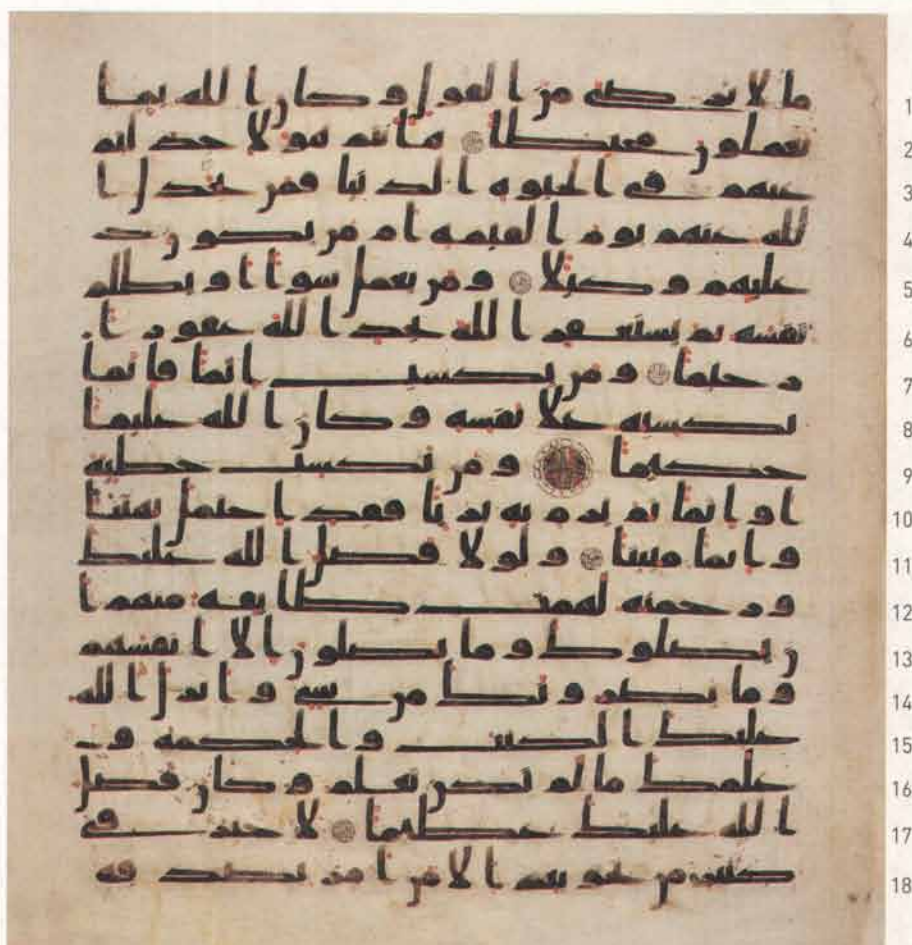 1 ما لا يرضى من القول وكان الله بما
2 يعملون محيطا هانتم هولا جدلتم
3 عنهم في الحيوة الدنيا فمن يجدل ا
4 لله عنهم يوم القيمة ام من يكون
5 عليهم وكيلا ومن يعمل سوا او يظلم
6 نفسه ثم يستغفر الله يجد الله غفورا
7 رحيما ومن يكسب اثما فانما
8 يكسبه على نفسه وكان الله عليما
9 حكيما ومن يكسب خطية
10 او اثما ثم يرم به بريا فقد احتمل بهتنا
11 واثما مبينا ولولا فضل الله عليك
12 ورحمته لهمت طايفة منهم ا
13 ن يضلوك وما يضلون الا انفسهم
14 وما يضرونك من شي وانزل الله
15 عليك الكتب والحكمة و
16 علمك ما لم تكن تعلم وكان فضل
17 الله عليك عظيما لا خير في
18 كثير من نجويهم الا من امر بصدقة